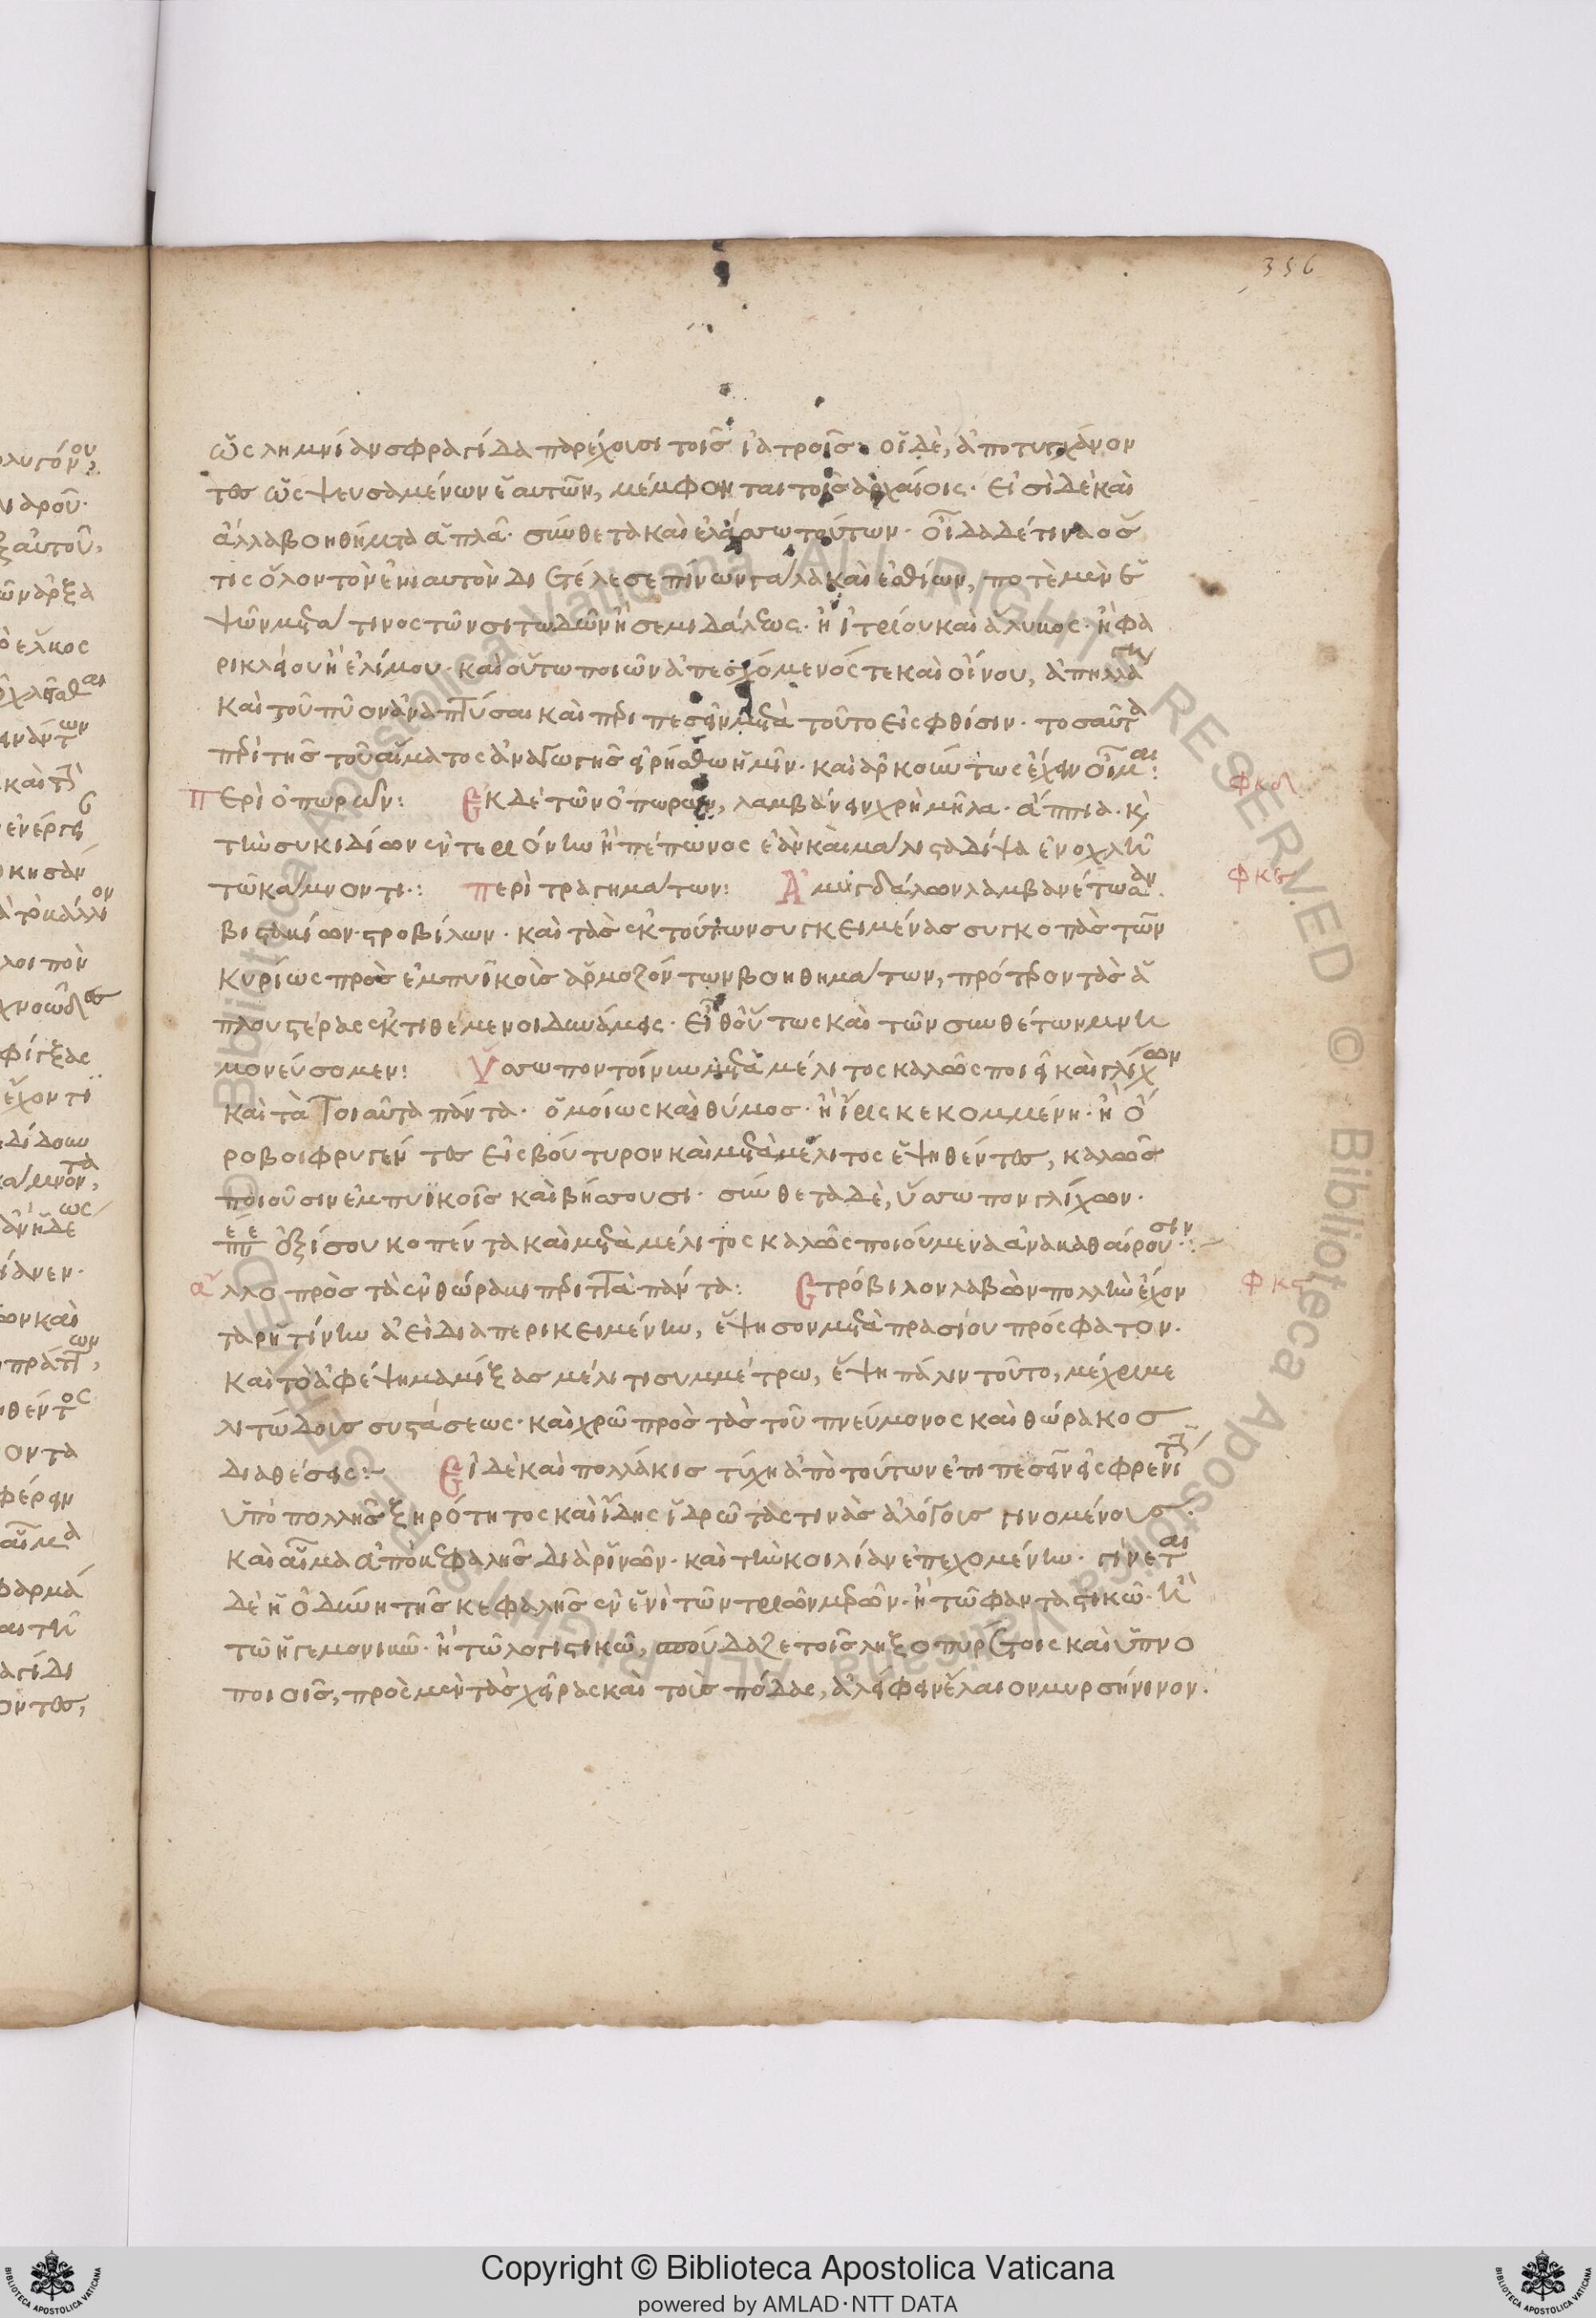 356
ὡς λημνίαν σφραγίδα παρέχουσι τοῖς ἰατροῖς· οἱ δὲ, ἀποτυγχάνον
τες ὡς ψευσαμένων ἑαυτῶν, μέμφονται τοῖς ἀρχαίοις· εἰσὶ δὲ καὶ
ἄλλα βοηθήματα ἁπλᾶ· σύνθετα καὶ ἐλάσσω τούτων· οἶδα δέ τινα ὃς
τις ὅλον τὸν ἐνιαυτὸν διετέλεσε πίνων γάλα καὶ ἐσθίων, ποτὲ μὲν ἕ
ψων μετά τινος τῶν σιτωδῶν ἢ σεμιδάλεως· ἢ ἰτρίου καὶ ἅλυκος· ἢ φα
ρικλάου ἢ ἐλίμου· καὶ οὕτω ποιῶν ἀπεσχόμενός τε καὶ οἴνου, ἀπηλλάγη
καὶ τοῦ πῦον ἀναπτύσαι καὶ περιπεσεῖν μετὰ τοῦτο εἰς φθίσιν· τοσαῦτα
περὶ τῆς τοῦ αἵματος ἀναγωγῆς εἰρήσθω ἡμῖν· καὶ ἀρκούντως ἔχειν οἶμαι:
Περὶ ὀπωρῶν: Ἐκ δὲ τῶν ὀπωρῶν, λαμβάνειν χρὴ μῆλα· ἄππια· καὶ φκδ
τὴν συκιδίων ἐντεριόνην ἢ πέπωνος ἐὰν καὶ μάλιστα δίψα ἐνοχλῇ
τῶ κάμνοντι: περὶ τραγημάτων: Ἀμυγδάλων λαμβανέτωσαν φκε
βιστακίων· στροβίλων· καὶ τὰς ἐκ τούτων συγκειμένας συγκοπὰς τῶν
κυρίως πρὸς ἐμπυϊκοὺς ἁρμοζόντων βοηθημάτων, πρότερον τὰς ἁ
πλουστέρας ἐκτιθέμενοι δυνάμεις· εἶθ' οὕτως καὶ τῶν συνθέτων μνη
μονεύσομεν: Ὕσσωπον τοίνυν μετὰ μέλιτος καλῶς ποιεῖ καὶ γλίχων
καὶ τὰ τοιαῦτα πάντα· ὁμοίως καὶ θύμος· ἢ ἶρις κεκομμένη· ἢ ὄ
ροβοι φρυγέντες εἰς βούτυρον καὶ μετὰ μέλιτος ἑψηθέντες, καλῶς
ποιοῦσιν ἐμπυϊκοῖς καὶ βήσσουσι· σύνθετα δὲ, ὕσσωπον γλίχων·
πέπερι ἐξίσου κοπέντα καὶ μετὰ μέλιτος καλῶς ποιούμενα ἀνακαθαίρουσιν:
ἄλλο πρὸς τὰ ἐν θώρακι περιττὰ πάντα: Στρόβιλον λαβὼν πολλὴν ἔχον φκς
τα ρητίνην ἀεὶ διαπερικειμένην, ἕψησον μετὰ πρασίου πρόσφατον·
καὶ τὸ ἀφέψημα μίξας μέλιτι συμμέτρω, ἕψη πάλιν τοῦτο, μέχρι με
λιτώδους συστάσεως· καὶ χρῶ πρὸς τὰς τοῦ πνεύμονος καὶ θώρακος
διαθέσεις: Εἰ δὲ καὶ πολλάκις τύχη ἀπὸ τούτων ἐπιπεσεῖν εἰς φρενῖτιν
ὑπὸ πολλῆς ξηρότητος καὶ ἴδης ἱδρῶτας τινὰς ἀλόγους γινομένους·
καὶ αἷμα ἀπὸ κεφαλῆς διὰ ῥινῶν· καὶ τὴν κοιλίαν ἐπεχομένην· γίνεται
δὲ ἡ ὀδύνη τῆς κεφαλῆς ἐν ἑνὶ τῶν τριῶν μερῶν· ἢ τῶ φανταστικῶ· ἢ
τῶ ἡγεμονικῶ· ἢ τῶ λογιστικῶ, σπούδαζε τοῖς ληξοπυρέτοις καὶ ὑπνο
ποιοῖς, πρὸς μὲν τὰς χεῖρας καὶ τοὺς πόδας, ἀλείφειν ἔλαιον μυρσίνινον·
Copyright © Biblioteca Apostolica Vaticana
powered by AMLAD·NTT DATA